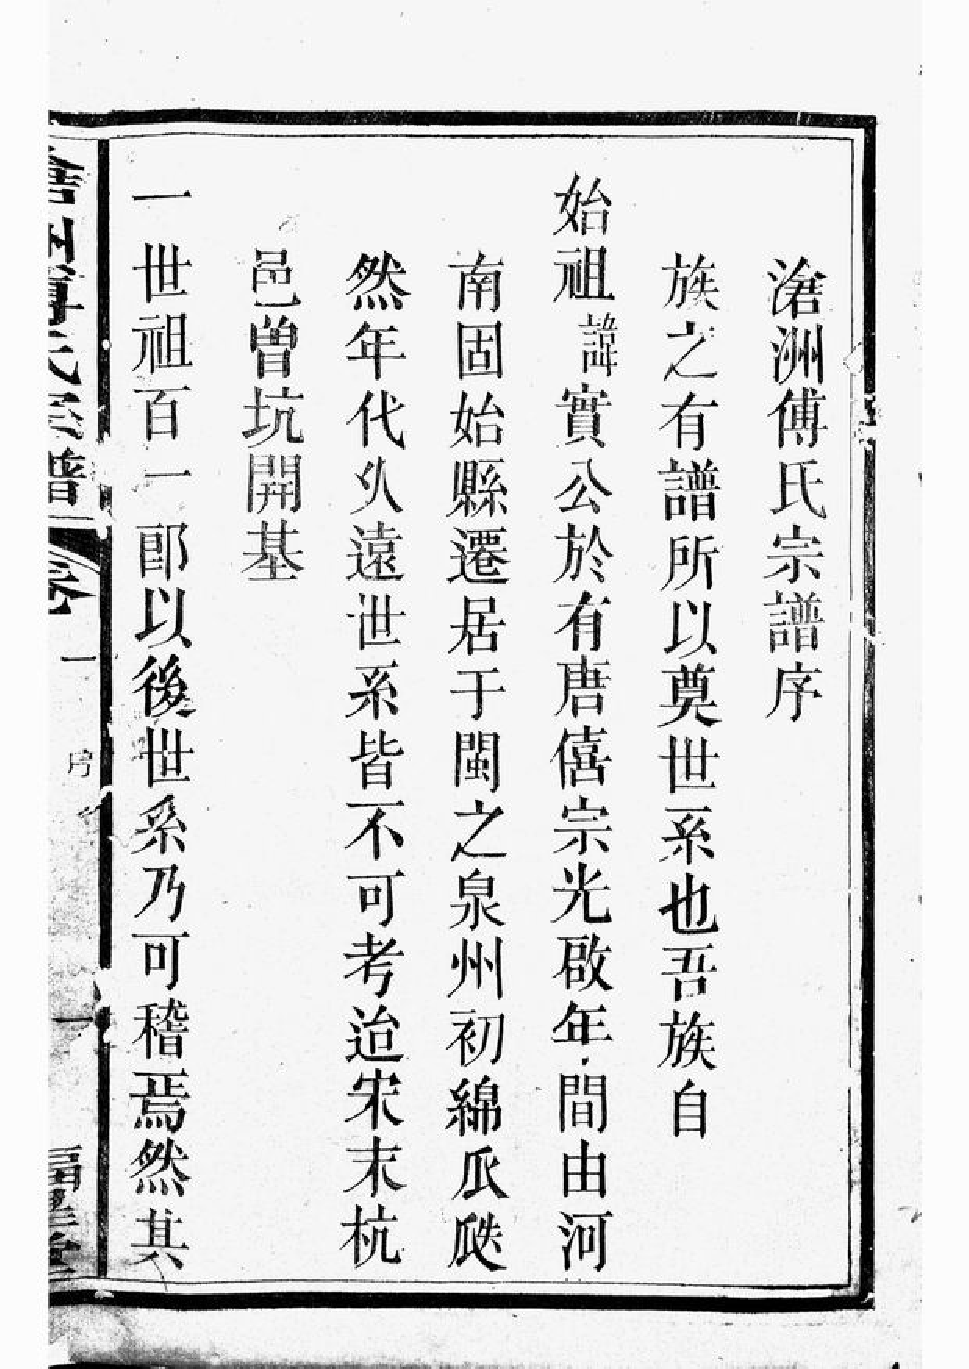 滄洲傅氏宗譜序
族之有譜所以奠世系也吾族自
始祖諱實公於有唐僖宗光啟年間由河
南固始縣遷居于閩之泉州初綿瓜瓞
然年代久遠世系皆不可考迨宋末杭
邑曾坑開基
一世祖百一郎以後世系乃可稽焉然其
滄洲傅氏宗譜 卷一 序 一